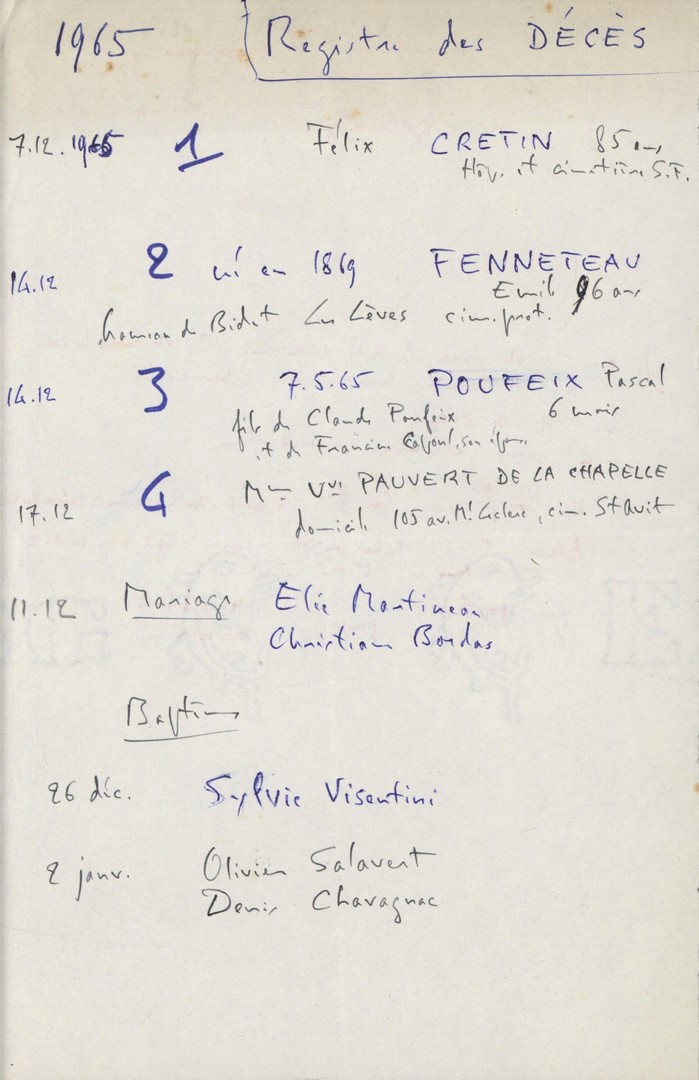 1965 Registre des DÉCÈS
7.12.1965 1 Félix CRETIN 85 ans
Hôp. et cimetière S.F.
14.12 2 né en 1869 FENNETEAU
Emile 96 ans
hameau de Bidet Les Lèves cim. prot.
14.12 3 7.5.65 POUFEIX Pascal
fils de Claude Poufeix 6 mois
et de Francine son épouse
17.12 4 Mme Vve PAUVERT DE LA CHAPELLE
domicile 105 av. Ml Leclerc, cim. St Avit
11.12 Mariage Elie Martineau
Christiane Bordas
Baptêmes
26 déc. Sylvie Visentini
2 janv. Olivier Salavert
Denis Chavagnac